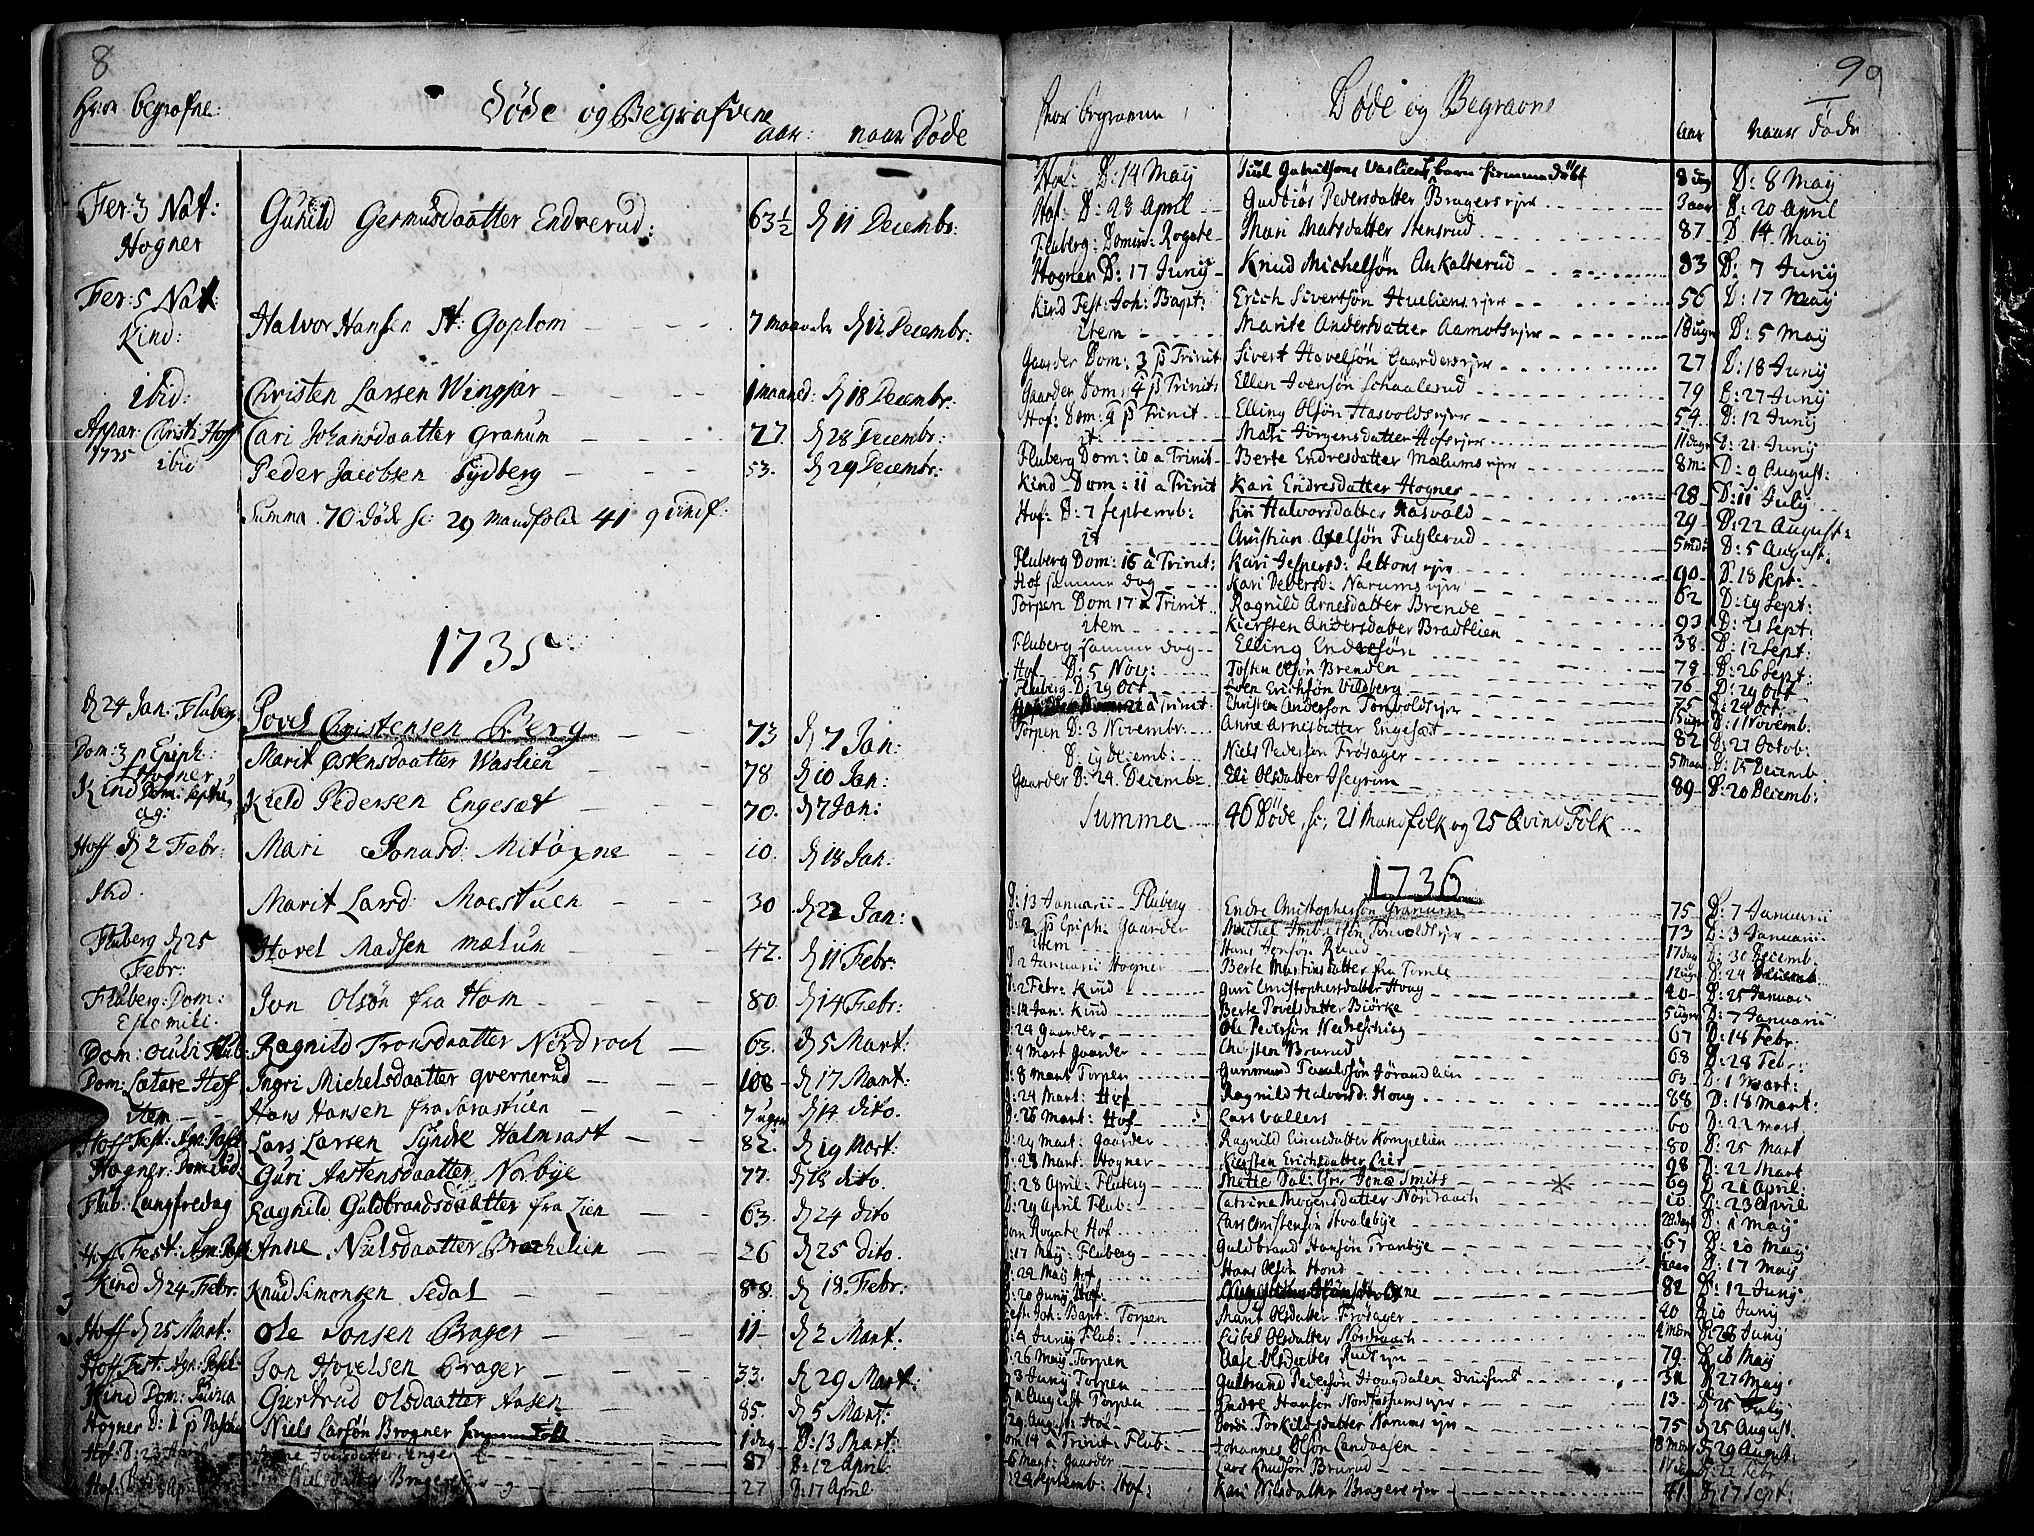 8
hvor begrafne: Døde og Begrafvene aar: naar Døde
Fer: 3 Nat: Hogner Gunild Germundsdaatter Endrerud: 63 1/2 d 11 Decembr:
Fer: 5 Nat: Kind: Halvor Hansen St: Goplom 7 maaneder d 12 Decembr:
ibid: Christen Larsen Wingjar 1 maaned: d 18 Decembr:
Appar: Christi Hoff 1735 Cari Johansdaatter Granum 77 d 28 Decembr:
ibid Peder Jacobsen Sydberg 53. d 29 Decembr:
Summa 70 døde sc: 29 mandfolk 41 qvindf:
1735
d 24 Jan: Fluberg Povel Christensen Berg 73 d 7 Jan:
Dom: 3 p Epiph: Hogner Marit Østensdaatter Waslien 78 d 10 Jan:
Kind Dom: Septuag: Kield Pedersen Engesæt 70. d 7 Jan:
Hoff d 2 Febr: Mari Jonasd: Mitøyne 10. d 18 Jan:
Ibid Marit Larsd: Moestuen 30 d 22 Jan:
Fluberg d 25 Febr: Hovel Madsen Mælum 47. d 11 Febr:
Fluberg: Dom: Estomihi. Jon Olsøn fra Hom 80. d 14 Febr:
Dom: Oculi Flub: Ragnild Tronsdaatter Nordroch 63. d 5 Mart:
Dom: Lætare Hoff Ingri Michelsdaatter Qvernerud 108 d 17 Mart:
item Hans Hansen fra Sarastuen 7 uger d 14 dito.
Hoff Fest: Ann: Pasl: Lars Larsen Syndre Halmrast 82. d 19 Mart:
Hogner: Dom: Jud: Guri Austensdaatter Norbye 77. d 18 dito.
Flub: Langfredag Ragnild Guldbrandsdaatter fra Lien 63. d 24 dito
Hoff Fest: Ann: Anne Nielsdaatter Brachelien 26 d 25 dito.
Kind d 24 Febr: Knud Simonsen Sedal 88. d 18. Febr:
Hoff d 25 Mart: Ole Jonsen Brager 11 d 2 Mart:
Hoff Fest: Jon Hovelsen Brager 33. d 29 Mart:
Kind Dom: Palma Gertrud Olsdaatter Aasen 85. d 5 Mart:
Hogner D: 1 p Pascha Niels Larsøn Brogner hiemmedøbt 1 dag D: 13 Mart:
Hof D: 23 Iversdatter Enger 87 D: 12 April
Hof: Nielsdatter Bragers 27 D: 17 April
9
hvor begravne Døde og Begravne aar naar døde
Hof: D: 14 May Juul Gunilsøns Vasliens barn hiemmedøbt 8 uger D: 8 May
Hof: D: 28 April Gudbiør Pedersdatter Bragers ejer 3 aar D: 20 April
Fluberg: Domin: Rogate Mari Matsdatter Stensrud 87 D 14. May
Hogner D: 17 Junij Knud Michelsøn Ankalterud 83 D: 7 Junij
Kind Fest: Joh: Bapt: Erich Sivertsøn Hueliens ejer 56 D: 17 May
item Marite Andersdatter Aamots ejer 18 uger D: 5 May
Gaarder Dom: 3 p Trinit Sivert Hovelsøn Gaarders ejer 27 D: 18 Junij
Gaarder Dom: 4 p Trinit: Ellen Ivensøn Schaalerud 79 D: 27 Junij
Hof: Dom: 4 p Trinit Elling Olsøn Hasvolds ejer 54 D: 12 Junij
it: Mari Jørgensdatter Hofs ejer 11 dage D: 21 Junij
Fluberg Dom: 10 a Trinit Berte Endresdatter Mælums ejer 8 m: D: 9 August:
Kind Dom: 11 a Trinit Kari Endresdatter Hogner 28 D: 11 July
Hof: D: 7 Septemb: Siri Halvorsdatter Hasvold 29 D: 22 August:
it Christian Axelsøn Fuglerud 5 mdr D: 5 August:
Fluberg Dom: 16 à Trinit: Kari Jespersd: Lettons ejer 90 D: 18 Sept:
Hof samme dag Kari Pedersd: Narums ejer 62 D: 19 Sept:
Torpen Dom 17 à Trinit Ragnild Arnesdatter Brende 93 D: 21 Sept:
item Kiersten Andersdatter Bradtlien 38. D: 12 Sept:
Fluberg samme dag Elling Endresøn 78 D: 26 Sept:
Hof D: 5 Nov: Tosten Olsøn Brenden 76 D: 29 Oct
Fluberg D: 29 Oct Iven Erichsøn Vildberg 75 D: 24 Oct:
22 à Trinit Christen Anderson Tonvolds ejer 15 uger D: 11 Novemb:
Torpen D: 3 Novembr: Anne Arnesdatter Engesæt 82 D: 27 Octob:
D: 19 Decemb: Niels Pedersøn Frøsager 5 maan D: 15 Decemb
Gaarder D: 24. Decembr Eli Olsdatter Jsegrim 89 D: 20 Decemb:
Summa 46 Døde, sc: 21 Mandfolk og 25 Qvindfolk
1736
D: 13 Januarii Fluberg Endre Christophersøn Granum 75 D: 7 Januarii
D: 2 p Epiph: Gaarder Michel Tonvolds ejer 73 D: 3 Januarii
item Hans Jensøn Rund 17 dag D: 30 Decemb.
2 Januarii Hogner Berte Martinsdatter fra Tomle 12 uger D: 24 Decemb
2 Febr: Kind Guri Christophersdatter Houg 40 D: 25 Januar:
14 Jan: Kind Berte Povelsdatter Biørke 5 uger D: 7 Januarii
24 Gaarder Ole Pedersøn Nedreschiag 67 D: 18 Febr.
4 Mart Gaarder Christen Brurud 68 D: 28 Febr:
8 Mart Torpen Gurimund Jørandlien 63 D: 1 Mart:
24 Mart: Hof Ragnild Halvorsd: Houg 88 D: 18 Mart:
26 Mart: Hof Lars Vallers 60 D: 22 Mart.
29 Mart: Gaarder Ragnild Einersdatter Kompelien 80 D: 25 Mart
28 Mart: Hogner Kiersten Erichsdatter Lier 98 D: 22 Mart
D: 28 April: Fluberg Mette Sal: Hr: Jens Smits 69 D: 21 April:
D: 29 April Flub: Catrina Mogensdatter Nordraach 10 D: 23 April
Dom Rogate Hof Lars Christensøn Hvalebye 20 dage D: 1 May
17 May: Fluberg Guldbrand Hansøn Tranbye 67 D: 20 May
22 May Hof Hans Olsøn Hond aar D: 17 May
20 Junij Hof. 82 D: 12 Junij
Fest: Joh: Bapt: Torpen Marit Olsdatter Frøsager 20 D 10 Junij
9 Junij Flub: Lisbet Olsdatter Nordraach D: 28 Junij
26 May Torpen Aase Olsdatter Ruds ejer 79 D 16 May
3 Junij Torpen Gulbrand Pedersøn Hougdalen 34 D 27 May
August Torpen Endre Hansøn Nordfossums ejer 13. D 25 July
29 August: Hof Dordi Torkildsdatter Narums ejer 75 D 25 August
Dom 14 à Trinit: Flub: Johannes Olsøn Landaasen 8 maan D 29 August:
6 Mart: Gaarder Lars Knudsøn Brurud D 22 Febr
24 Septemb: Hof: Kari Nilsdatter Bragers ejer 41 D 17 Sept: